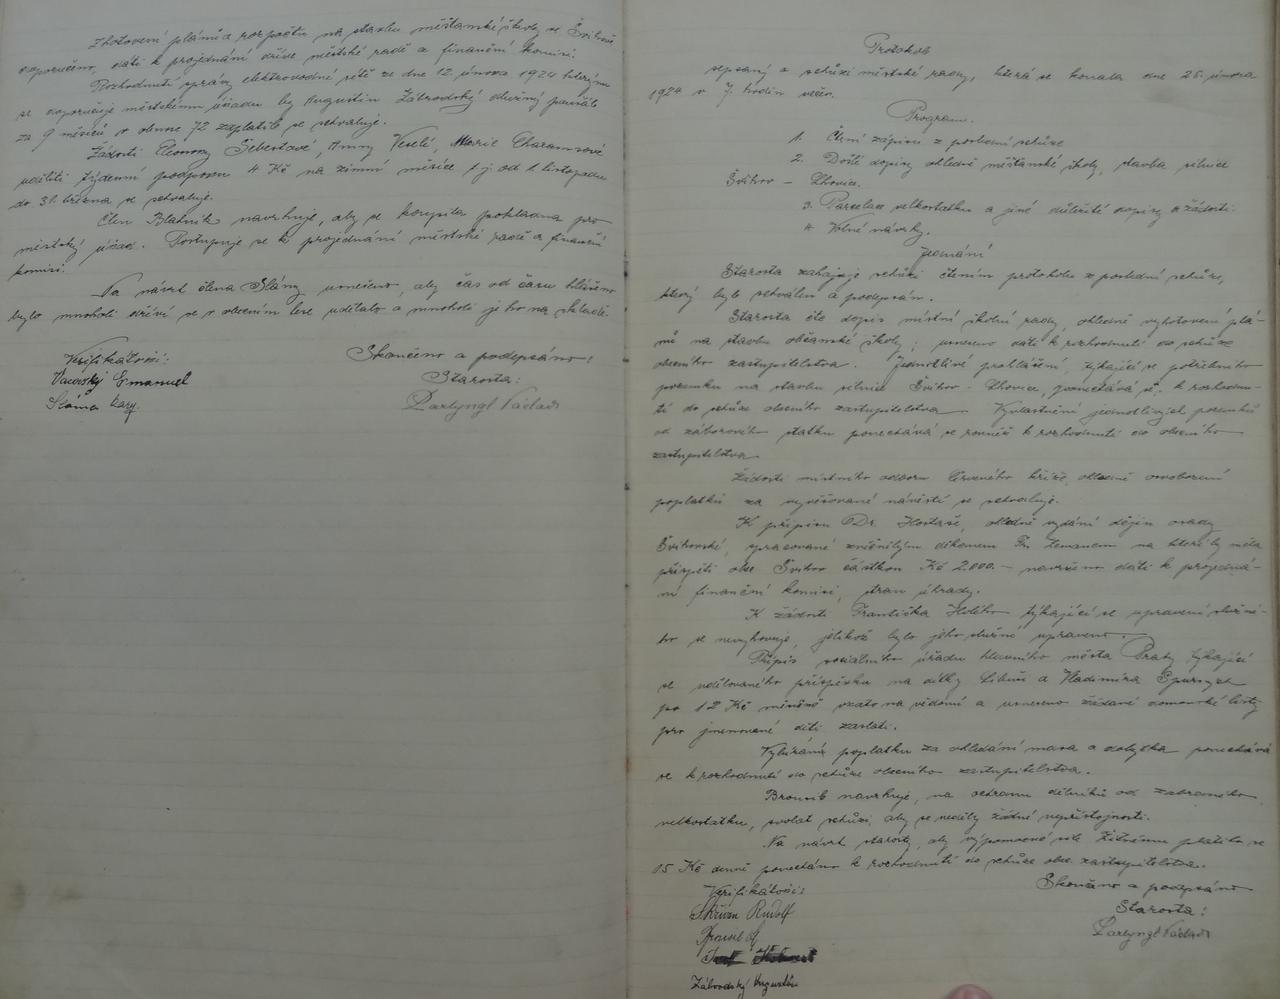 zhotovení plánů a rozpočtu na stavbu měšťanské školy ve Švihově
doporučeno, dáti k projednání dříve městské radě a finanční komisi.
Rozhodnutí správy elektrovodné sítě ze dne 12. února 1924 kterým
se doporučuje městskému úřadu by Augustin Zábrodský dlužný paušál
za 9 měsíců v obnose 72 zaplatil se schvaluje.
Žádosti Eleonory Šebestové, Anny Veselé, Marie Charamzové
uděliti týdenní podporu 4 Kč na zimní měsíce t.j. od 1. listopadu
do 31. března se schvaluje.
Člen Blatník navrhuje, aby se koupila pokladna pro
městský úřad. Postupuje se k projednání městské radě a finanční
komisi.
Na návrh člena Slámy usneseno, aby čas od času hlášeno
bylo mnoholi dříví se v obecním lese udělalo a mnoholi je ho na skladě.
Skončeno a podepsáno:
Verifikátoři:
Starosta:
Vacovský Emanuel
Sláma Karel
Partyngl Václav
Protokol
sepsaný o schůzi městské rady, která se konala dne 25. února
1924 v 7. hodin večer.
Program.
1. Čtení zápisu z poslední schůze
2. Došlé dopisy ohledně měšťanské školy, stavba silnice
Švihov – Lhovice.
3. Parcelace velkostatku a jiné důležité dopisy a žádosti.
4. Volné návrhy.
Jednání
Starosta zahajuje schůzi čtením protokolu z poslední schůze,
který byl schválen a podepsán.
Starosta čte dopis místní školní rady, ohledně vyhotovení plá-
nů na stavbu občanské školy; usneseno dáti k rozhodnutí do schůze
obecního zastupitelstva. Jednotlivé prohlášení, týkající se potřebného
pozemku na stavbu silnice Švihov - Lhovice, ponechává se k rozhodnu-
tí do schůze obecního zastupitelstva. Vyvlastnění jednotlivých pozemků
od záborového statku ponechává se rovněž k rozhodnutí do obecního
zastupitelstva.
Žádosti místního odboru Červeného kříže, ohledně osvobození
poplatků za vyvěšované návěstí se schvaluje.
K přípisu Dr. Hostaše, ohledně vydání dějin osady
Švihovské, zpracované zvěčnělým děkanem Fr. Zemanem na které by měla
přispěti obec Švihov částkou Kč 2.000.– navrženo dáti k projedná-
ní finanční komisi, stran úhrady.
K žádosti Františka Holého týkající se upravení služné-
ho se nevyhovuje, jelikož bylo jeho služné upraveno.
Přípis sociálního úřadu hlavního města Prahy týkající
se udělovaného příspěvku na dítky Libuši a Vladimíra Spurných
po 12 Kč měsíčně vzato na vědomí a usneseno žádané domovské listy
pro jmenované děti zaslati.
Vybírání poplatku za ohledání masa a dobytka ponechává
se k rozhodnutí do schůze obecního zastupitelstva.
Brousil navrhuje, na ochranu dělníků od zabraného
velkostatku, svolat schůzi, aby se neděly žádné nepřístojnosti.
Na návrh starosty, aby výpomocné síle platilo se
15 Kč denně ponecháno k rozhodnutí do schůze obec. zastupitelstva.
Skončeno a podepsáno
Verifikátoři:
Starosta:
Skřivan Rudolf
Partyngl Václav
Brousil
Zábrodský Augustin